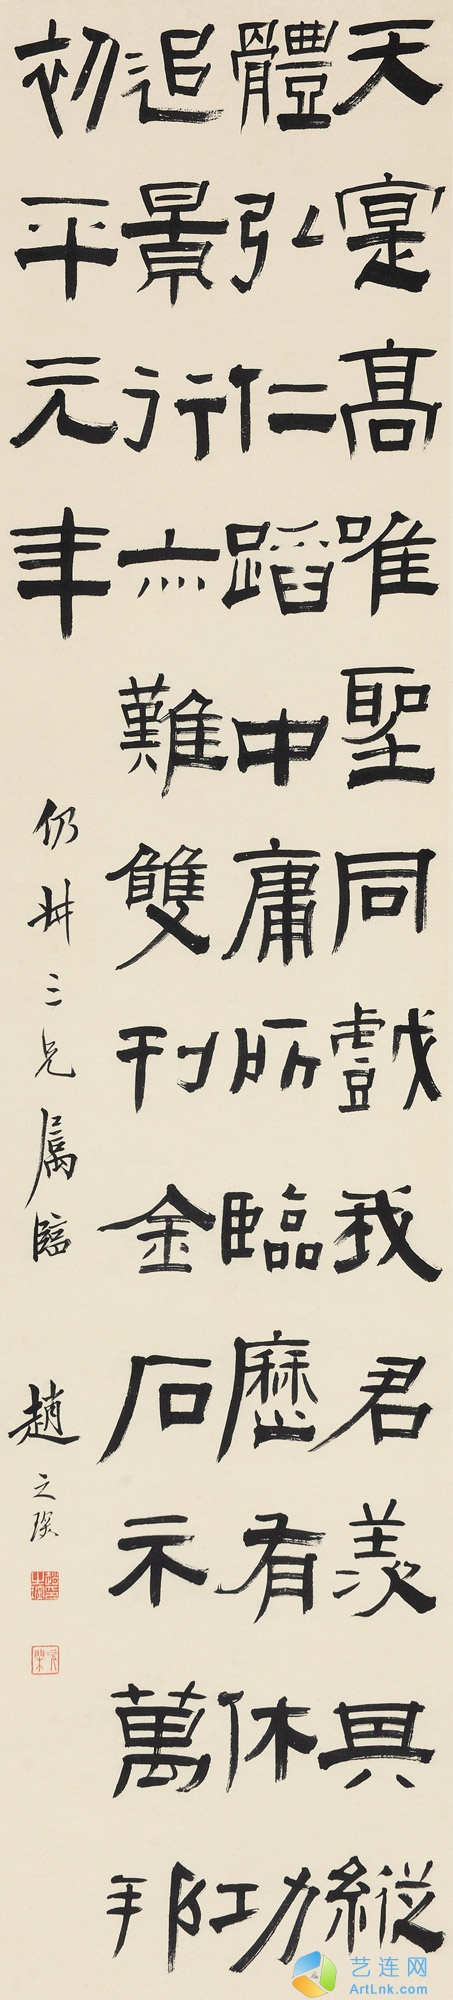 天寔高唯聖同戲我君羨其縱
體弘仁蹈中庸所臨歷有休功
追景行亦難雙刊金石示萬邦
初平元年
仍三兄屬臨
趙之琛
艺连网
ArtLnk.com